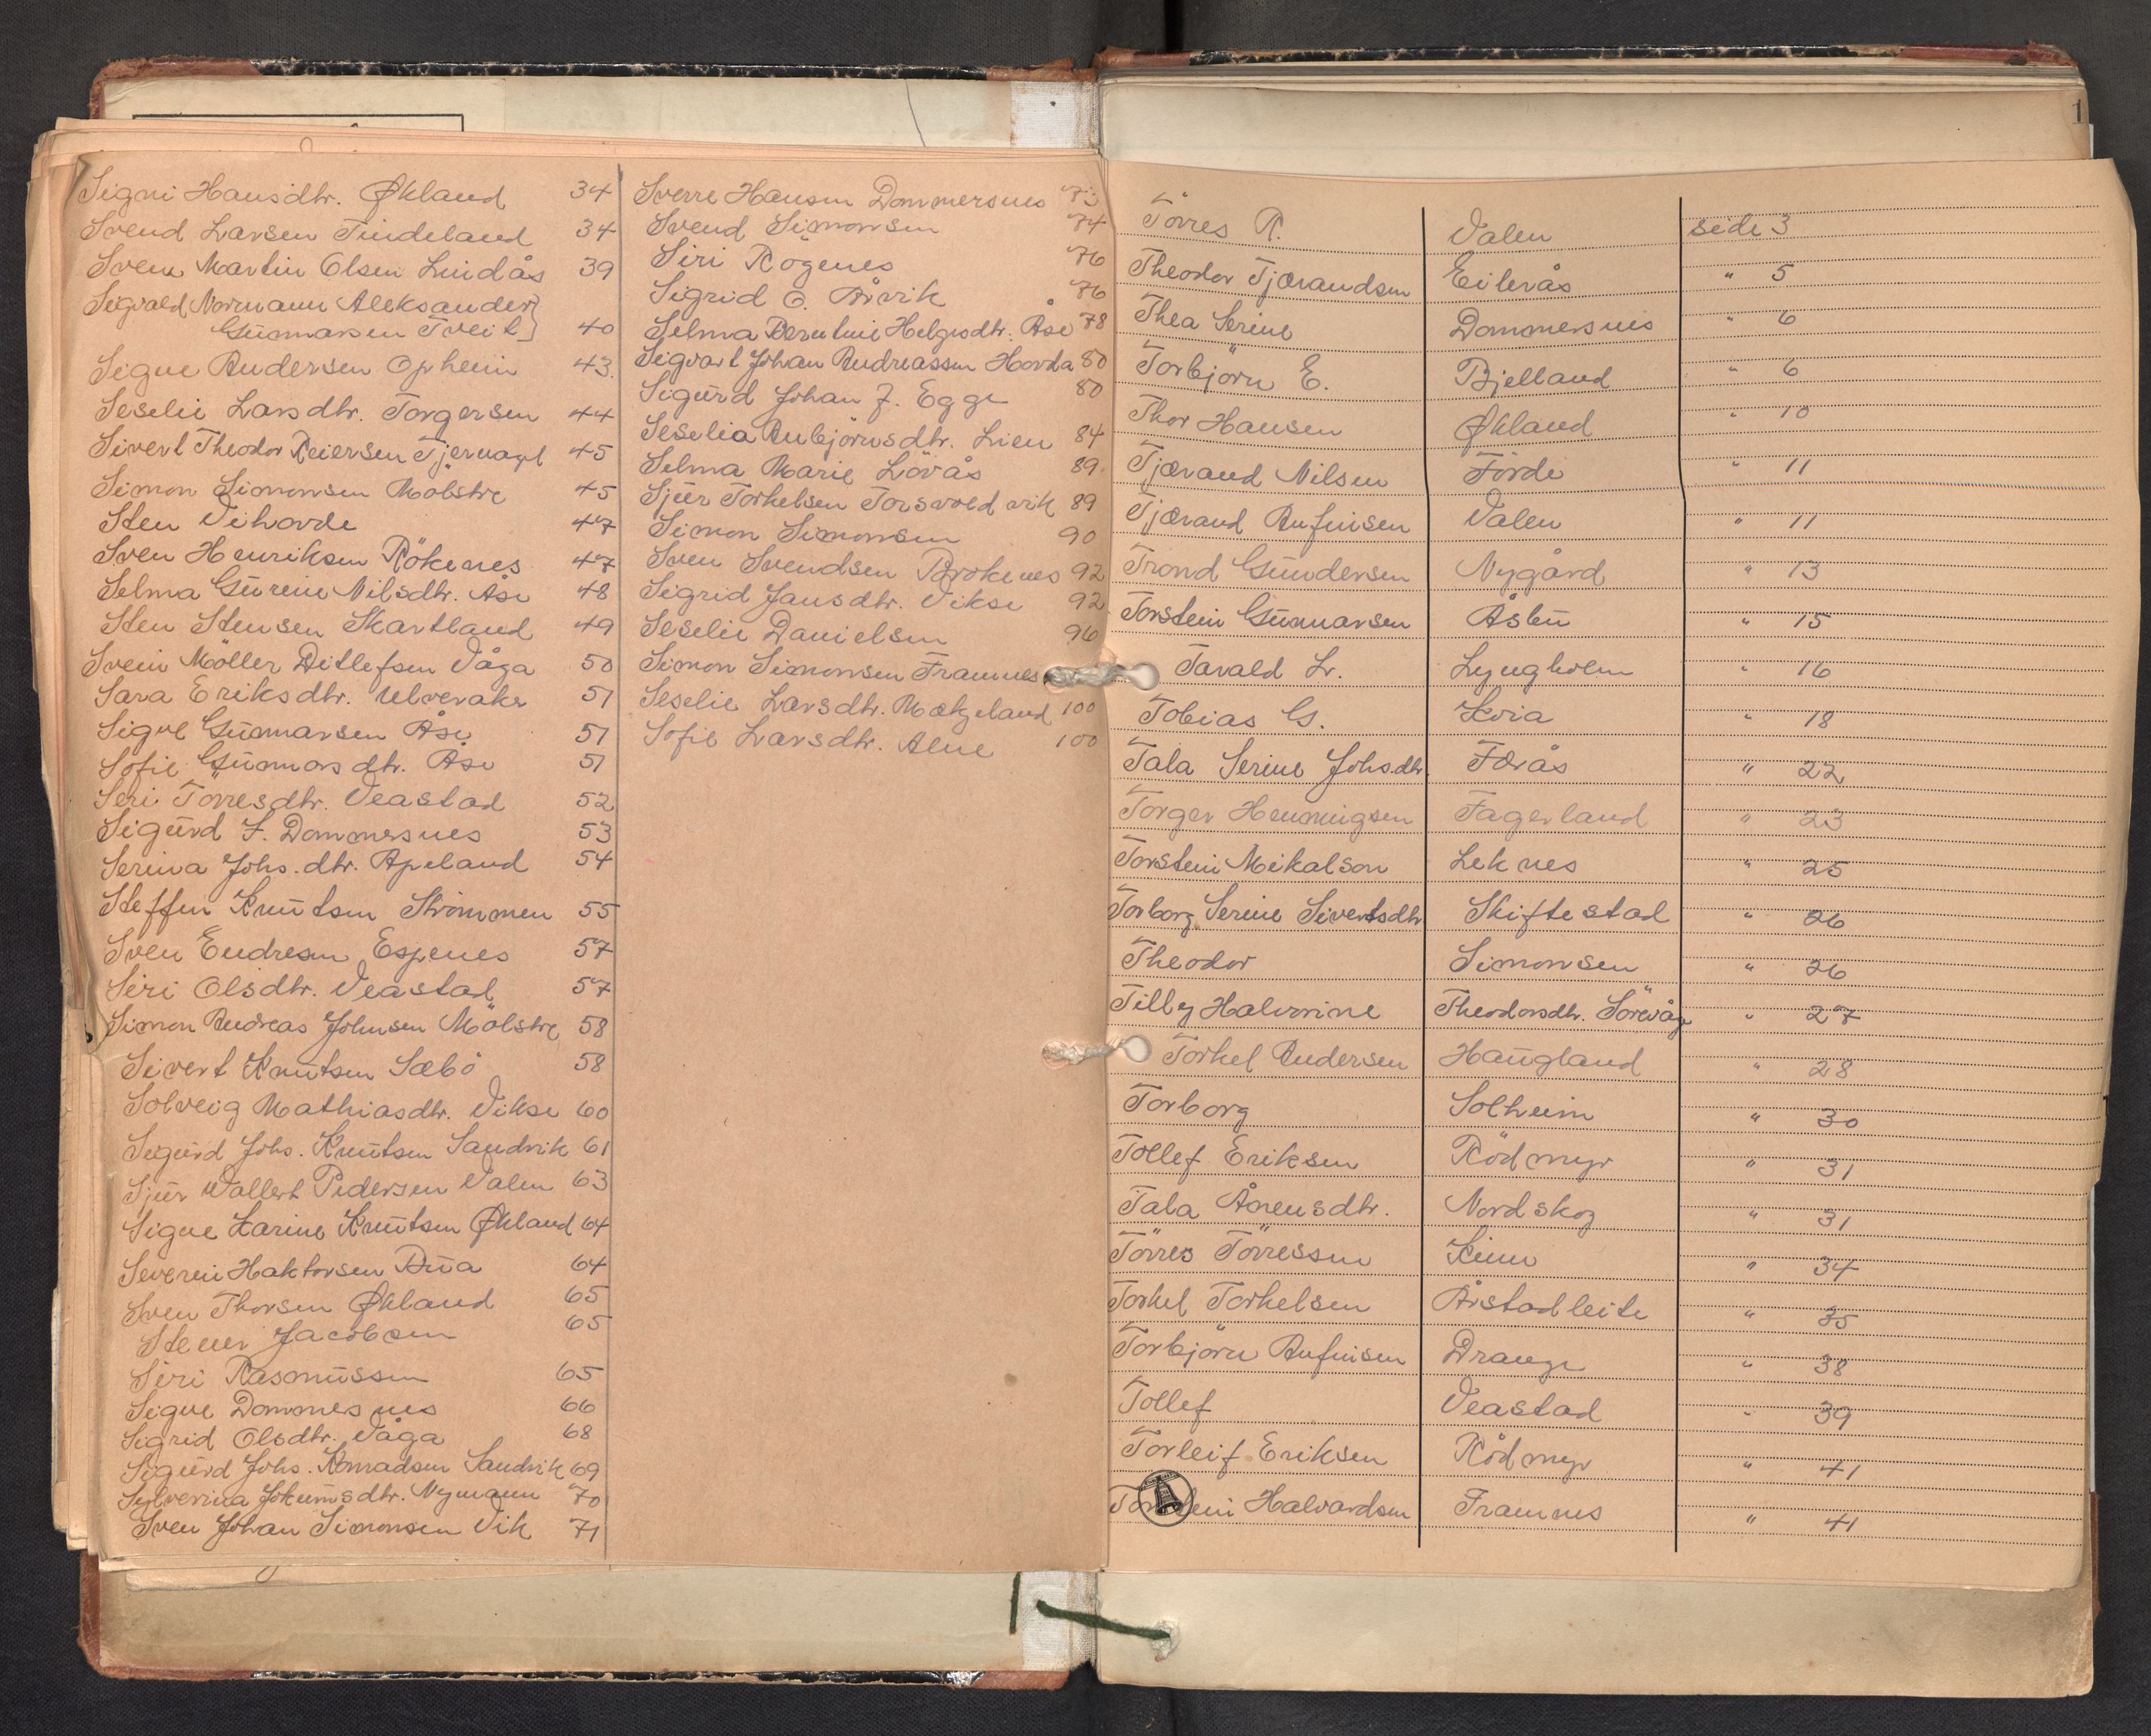 Signi Hansdtr. Økland 34
Svend Larsen Tindeland 34
Sven Martin Olsen Lindås 39
Sigvald Normann Aleksander
Gunnarsen Tveit 40
Signe Andersen Opheim 43
Seselie Larsdtr. Torgersen 44
Sivert Theodor Reiersen Tjernagel 45
Simon Simonsen Mølstre 45
Sten Vihovde 47
Sven Henriksen Rökenes 47
Selma Gurine Nilsdtr. Åse 48
Sten Stensen Skartland 49
Svein Möller Ditlefsen Våga 50
Sara Eriksdtr. Ulveraker 51
Sigve Gunnarsen Åse 51
Sofie Gunnarsdtr. Åse 51
Seri Törresdtr. Veastad 52
Sigurd F. Dommersnes 53
Serina Johs.dtr. Apeland 54
Steffen Knutsen Strömmen 55
Sven Endresen Espenes 57
Siri Olsdtr. Veastad 57
Simon Andreas Johnsen Mölstre 58
Sivert Knutsen Sæbö 58
Solveig Mathiasdtr. Vikse 60
Sigurd Johs. Knutsen Sandvik 61
Sjur Wallert Pedersen Valen 63
Signe Karine Knutsen Økland 64
Severin Haktorsen Bua 64
Sven Thorsen Økland 65
Stener Jacobsen 65
Siri Rasmussen 65
Sigve Dommersnes 66
Sigrid Olsdtr. Våga 68
Sigurd Johs. Konradsen Sandvik 69
Sylverina Jokumsdtr. Nymann 70
Sven Johan Simonsen Vik 71
Sverre Hansen Dommersnes 73
Svend Simonsen 74
Siri Rögenes 76
Sigrid O. Årvik 76
Selma Berntine Helgesdtr. Åse 78
Sigvart Johan Andreassen Hovda 80
Sigurd Johan J. Egge 80
Seselia Anbjörnsdtr. Lien 84
Selma Marie Lövås 89
Sjur Torkelsen Torsvoldvik 89
Simon Simonsen 90
Sven Svendsen Brokenes 92
Sigrid Jansdtr. Vikse 92
Seselie Danielsen 96
Simon Simonsen Framnes
Seselie Larsdtr. Mækjeland 100
Sofie Larsdtr. Alne 100
1
Törres R. Valen side 3
Theodor Tjærandsen Eilerås " 5
Thea Serine Dommersnes " 6
Torbjörn E. Bjelland " 6
Thor Hansen Økland " 10
Tjærand Nilsen Förde " 11
Tjærand Anfinsen Valen " 11
Trond Gundersen Nygård " 13
Torstein Gunnarsen Åsbu " 15
Tarald Lr. Lyngholm " 16
Tobias G. Kvia " 18
Tala Serine Johs.dtr. Færås " 22
Torger Henningsen Fagerland " 23
Torstein Mikalson Leknes " 25
Torborg Serine Sivertsdtr Skiftestad " 26
Theodor Simonsen " 26
Tilly Halvorine Theodorsdtr. Sörevåge " 27
Torkel Andersen Haugland " 28
Torborg Solheim " 30
Tollef Eriksen Rödmyr " 31
Tala Årensdtr. Nordskog " 31
Törres Törressen Kinn " 34
Torkel Torkelsen Årstadleite " 35
Torbjörn Anfinsen Drange " 38
Tollef Veastad " 39
Torleif Eriksen Rödmyr " 41
Torstein Halvardsen Framnes " 41